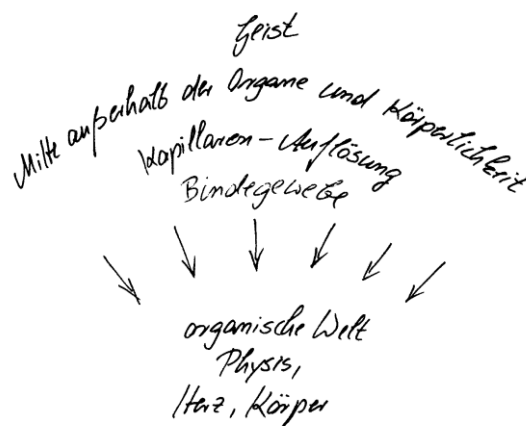 Geist
Mitte außerhalb der Organe und Körperlichkeit
Kapillaren-Auflösung
Bindegewebe
organische Welt
Physis,
Herz, Körper